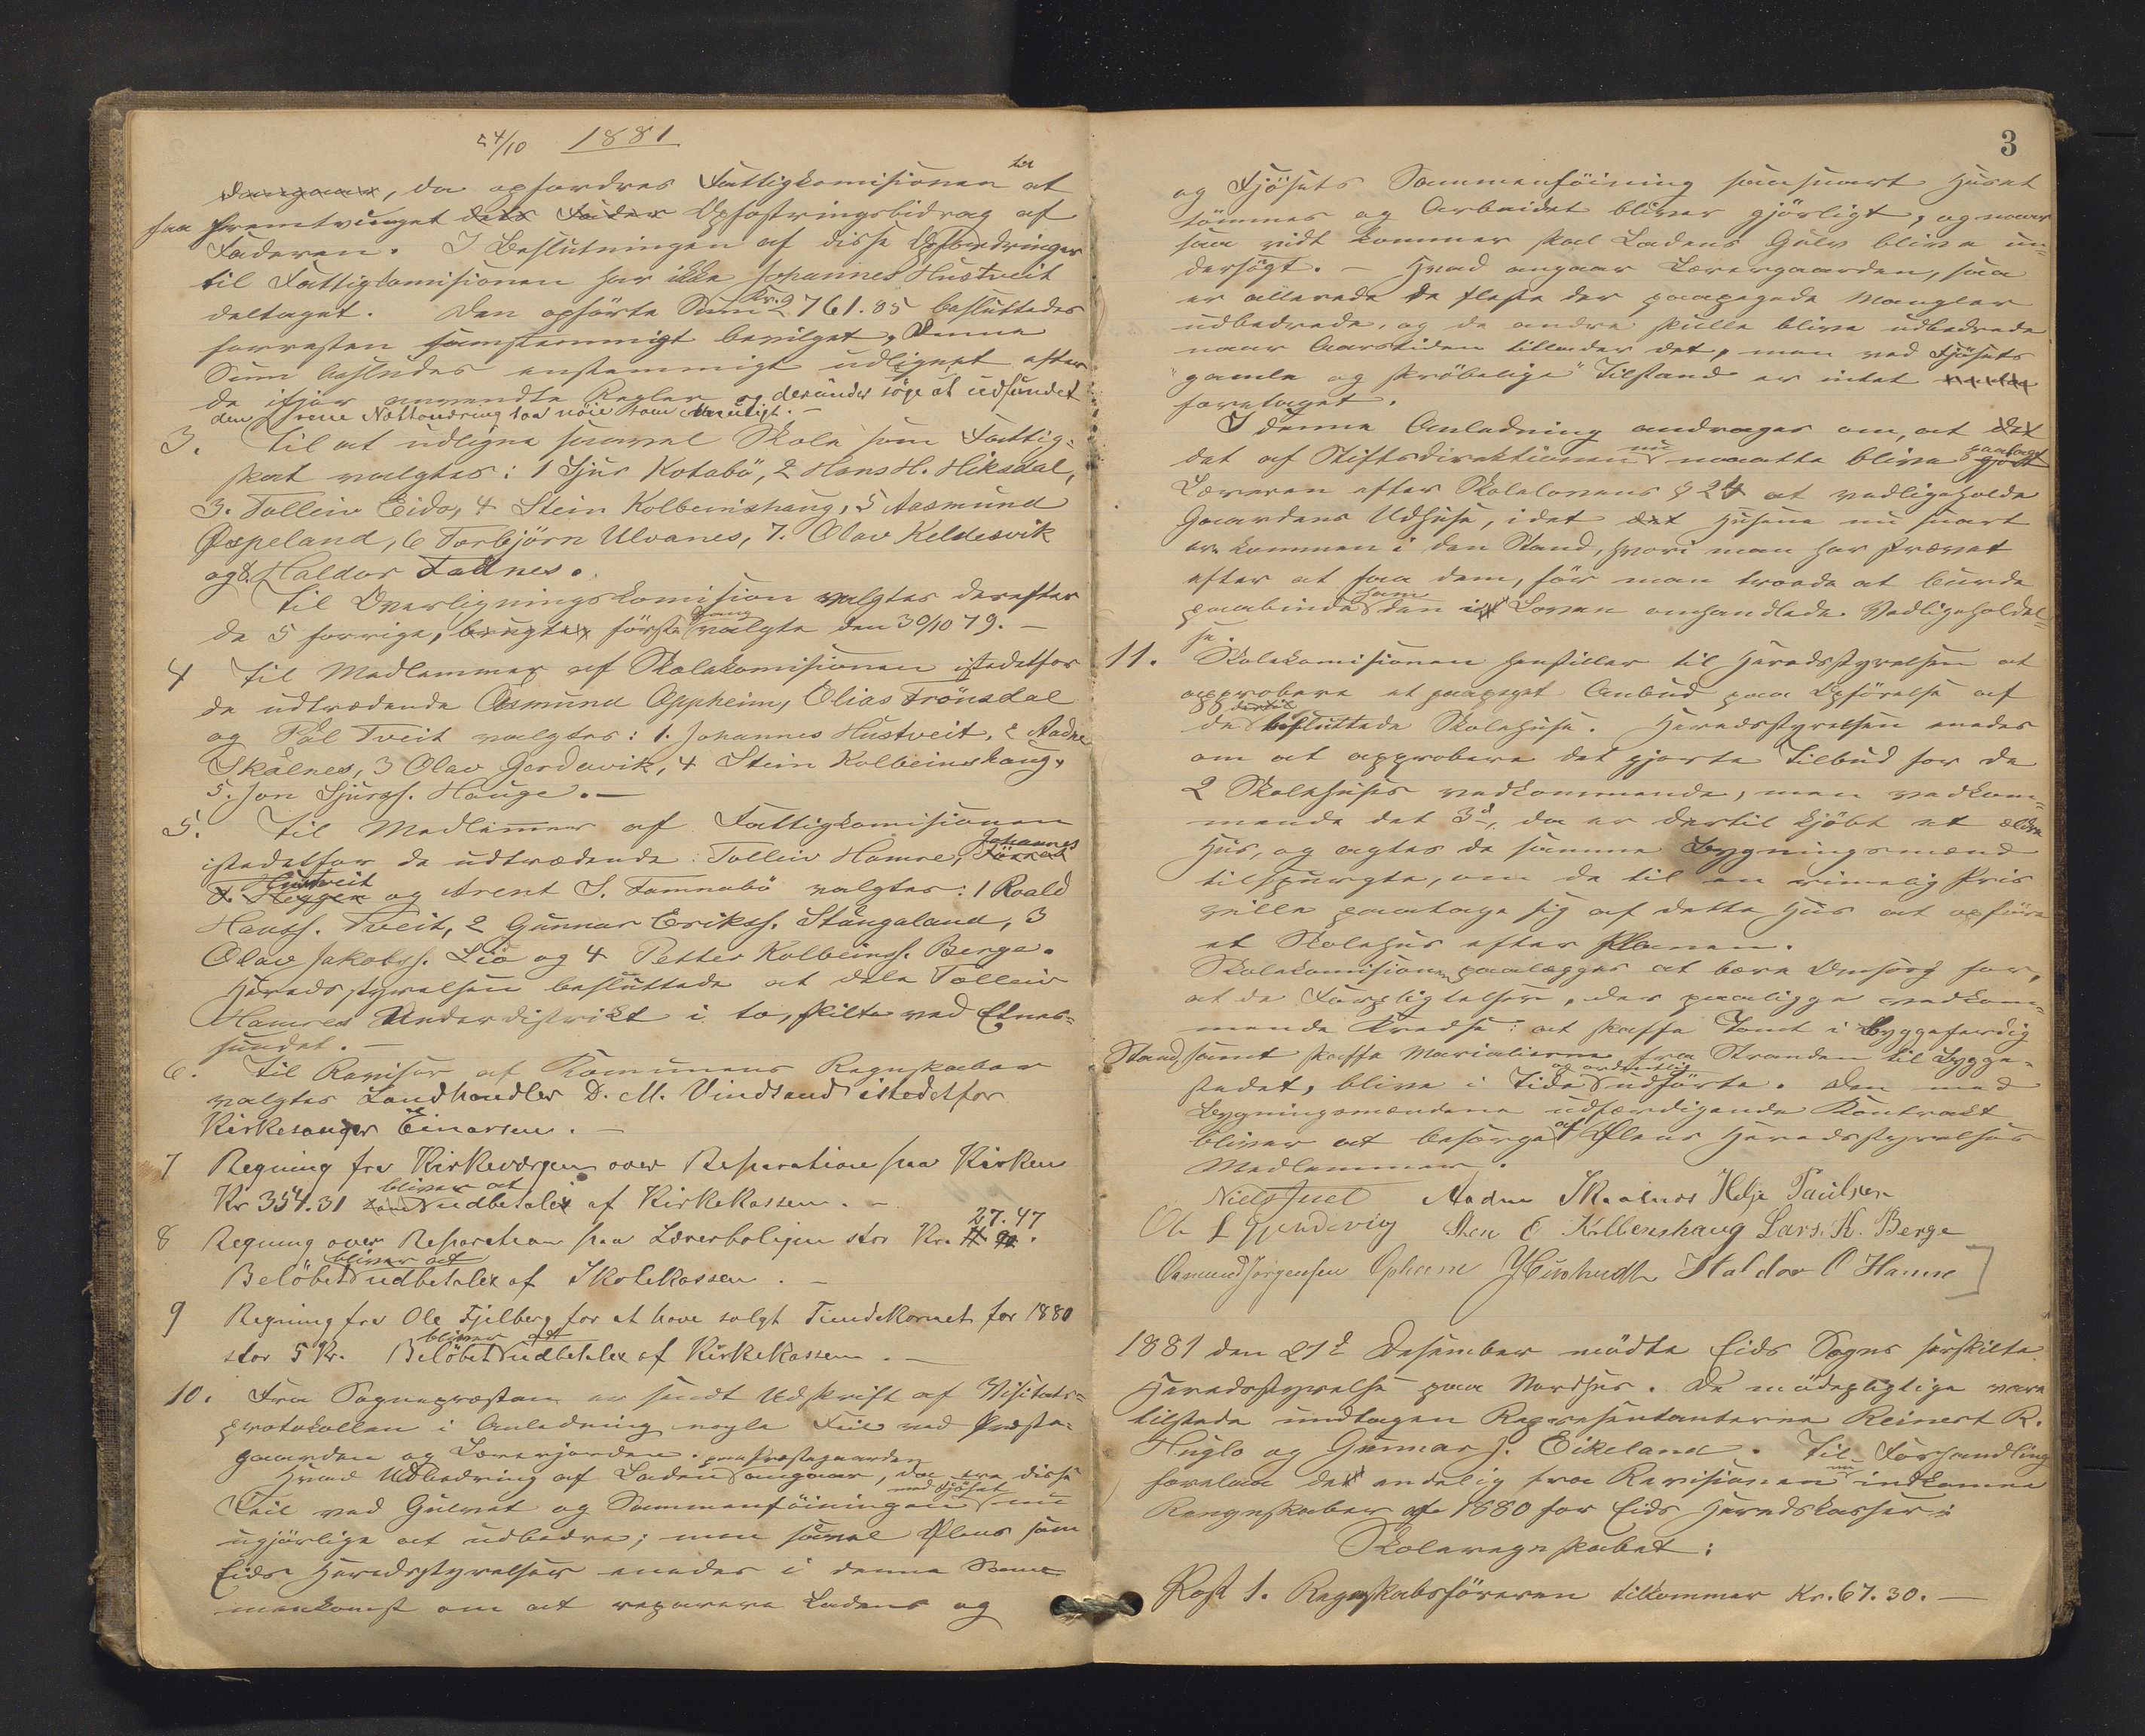 24/10 1881
Dangaar, da opfordres Fattigkomisionen til at
faa fremtvunget dets Fader Opfostringsbidrag af
Faderen. I Beslutningen af disse Opfordringer
til Fattigkomisionen har ikke Johannes Hustveit
deltaget. Den opførte Sum Kr. 2761.85 besluttedes
forresten samstemmigt bevilget, Denne
Sum besluttedes enstemmigt udlignet efter
de ifjor anvendte Regler og derunder söge at udfundet
den Nettoindtægt saa nöie som muligt. –
3. Til at udligne saavel Skole som Fattig-
skat valgtes: 1 Sjur Kotabö, 2 Hans H. Hiksdal,
3. Tolleiv Eide, 4 Stein Kolbeinshaug, 5 Aasmund
Øspeland, 6 Torbjörn Ulvanes, 7. Olav Keldesvik
og 8. Haldor Fatnes.
Til Overligningskomision valgtes derefter
de 5 forrige, første Gang valgte den 30/10 79. –
4 Til Medlemmer af Skolekomisionen istedetfor
de udtrædende Osmund Oppheim, Elias Frönsdal
og Pål Tveit valgtes: 1. Johannes Hustveit, 2 Aadne
Skålnes, 3 Olav Gjerdevik, 4 Stein Kolbeinshaug,
5. Jon Sjurss. Hauge. –
5. Til Medlemmer af Fattigkomisionen
istedetfor de udtrædende: Tolleiv Hamre, Johannes
Hustveit og Arent S. Tamnabö valgtes: 1 Roald
Hanss. Tveit, 2 Gunnar Erikss. Stangaland, 3
Olav Jakobss. Lio og 4 Petter Kolbeinss. Berge.
Heredsstyrelsen besluttede at dele Tolleiv
Hamres Underdistrikt i to, skilte ved Etne-
sundet. –
6. Til Revisor af Komunens Regnskaber
valgtes Landhandler D. M. Vindsand istedetfor
Kirkesanger Einarsen. –
7 Regning fra Kirkeværgen over Reparation paa Kirken
Kr 354.31 bliver at udbetale af Kirkekassen. –
8 Regning over Reparation paa Lærerboligen stor Kr. 27.47
Belöbet bliver at udbetale af Skolekassen. –
9 Regning fra Ole Fjelberg for at have solgt Tiendekornet for 1880
stor 5 Kr. Belöbet bliver at udbetale af Kirkekassen. –
10. Fra Sognepræsten er sendt Udskrift af Visitats-
protokollen i Anledning nogle Feil ved Præste-
gaarden og Lærerjorden.
Hvad Udbedring af Laden paa Præstegaarden angaar, da ere disse
Feil ved Gulvet og Sammenföiningen med Fjöset nu
ugjørlige at udbedre; men saavel Ølens som
Eids Heredsstyrelser enedes i denne Sam-
menkomst om at reparere Ladens og
3
og Fjösets Sammenföining saasnart Huset
tömmes og Arbeidet bliver gjörligt, og naar
saa vidt kommer skal Ladens Gulv blive un-
dersögt. – Hvad angaar Lærergaarden, saa
er allerede de fleste der paapegede Mangler
udbedrede, og de andre skulle blive udbedrede
naar Aarstiden tillader det, men ved Fjösets
"gamle og skröbelige" Tilstand er intet
foretaget.
I denne Anledning andrages om, at
det af Stiftsdirektionen nu maatte blive paalagt
Læreren efter Skolelovens § 24 at vedligeholde
Gaardens Udhuse, idet Husene nu snart
ere kommen i den Stand, hvori man har strævet
efter at faa dem, för man troede at burde
paabinde ham den i Loven omhandlede Vedligeholdel-
se.
11. Skolekomisionen henstiller til Heredsstyrelsen at
approbere et paapeget Anbud paa Opförelse af
de besluttede Skolehuse. Heredsstyrelsen enedes
om at approbere det gjorte Tilbud for de
2 Skolehuses vedkommende, men vedkom-
mende det 3d, da er dertil kjöbt et ældre
Hus, og agtes de samme Bygningsmænd
tilspurgte, om de til en rimelig Pris
ville paatage sig af dette Hus at opføre
et Skolehus efter Planen.
Skolekomisionen paalægges at bære Omsorg for,
at de Forpligtelser, der paaligge vedkom-
mende Kredse: at skaffe Tomt i byggefærdig
Stand, samt skaffe Materialierne fra Stranden til Bygge-
stedet, blive i Tide og ordentlig udførte. Den med
Bygningsmændene udfærdigende Kontrakt
bliver at besørge af Ølens Heredsstyrelses
Medlemmer.
Niels Juel Aadne Skaalnes Helje Paulsen
Ole L Gjerdevig Sten O Kolbenshaug Lars. K. Berge
Osmund Jørgensen Ophem J Hustvedt Haldor O Hamre
1881 den 21de Desember mödte Eids Sogns særskilte
Heredsstyrelse paa Nordhus. De mödepligtige vare
tilstede undtagen Repræsentanterne Reinert R.
Huglo og Gunnar J. Eikeland. Til Forhandling
forelaa det endelig fra Revisionen nu indkomne
Rengnskaber af 1880 for Eids Heredskasser:
Skoleregnskabet:
Post 1. Regnskabsføreren tilkommer Kr. 67.30. –